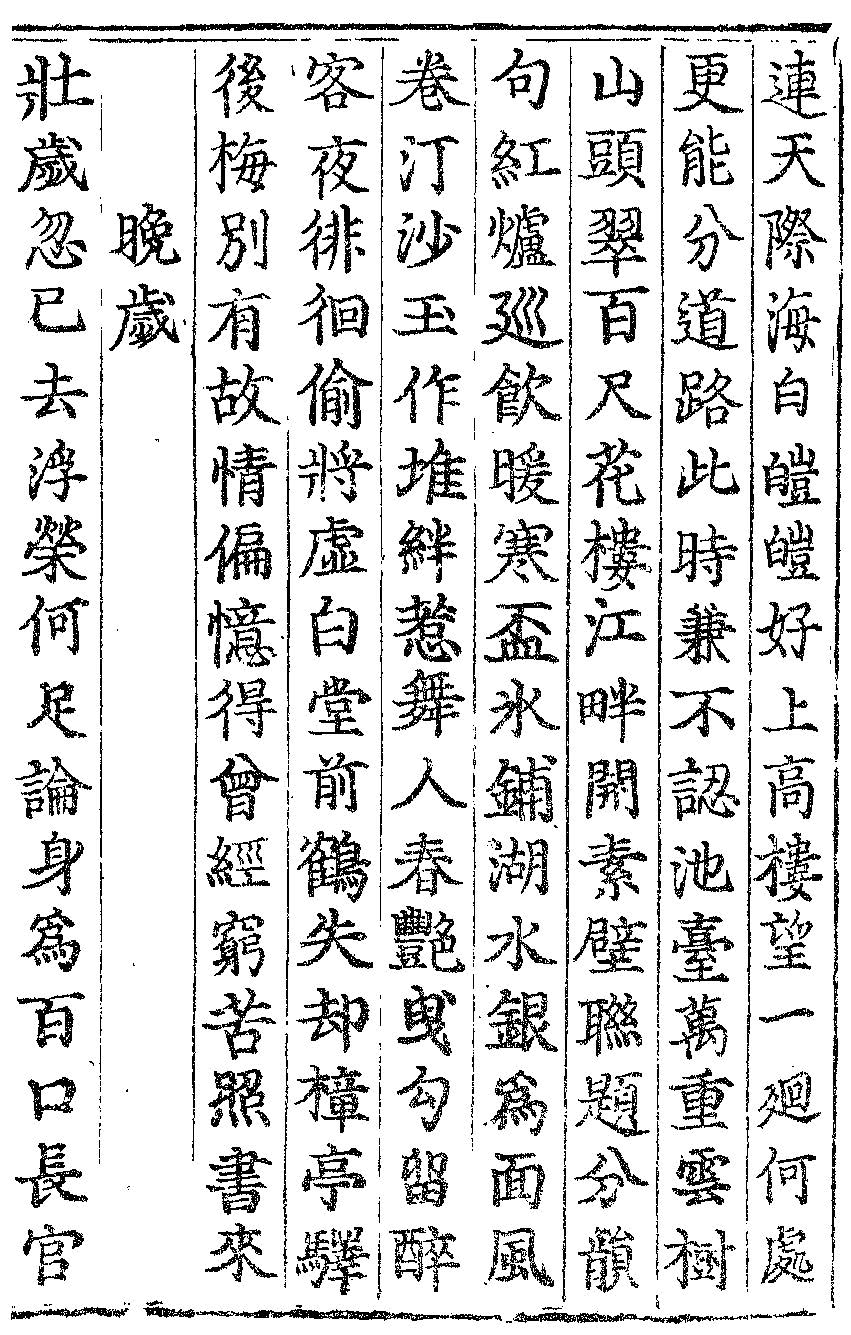 連天際海白皚皚好上高樓望一廻何處
更能分道路此時兼不認池臺萬重雲樹
山頭翠百尺花樓江畔開素壁聯題分韻
句紅爐廵飮暖寒盃氷鋪湖水銀爲面風
卷汀沙玉作堆絆惹舞人春艷曳勾留醉
客夜徘徊偷將虛白堂前鶴失却樟亭驛
後梅別有故情偏憶得曾經窮苦照書來
晚歲
壯歲忽已去浮榮何足論身爲百口長官